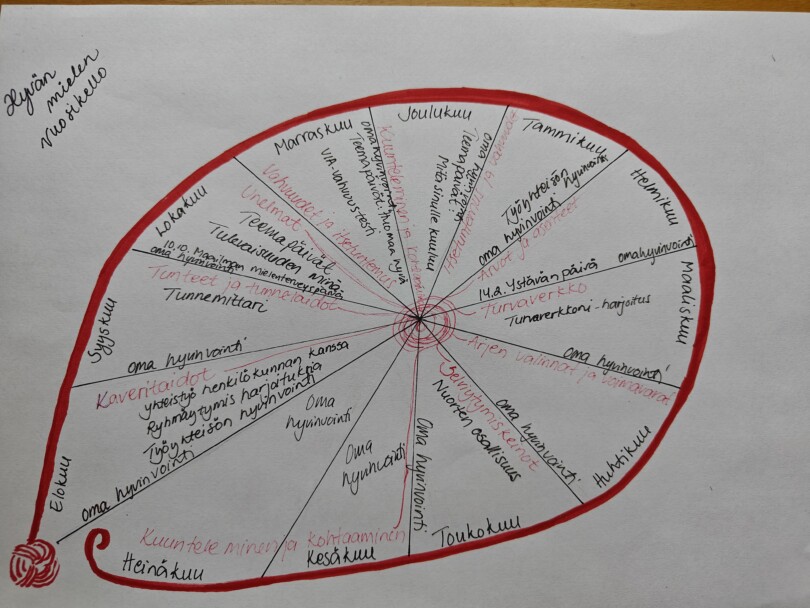 Hyvän
mielen
vuosikello
Elokuu
Kaveritaidot
yhteistyö henkilökunnan kanssa
Ryhmäytymis harjoituksia
Työyhteisön hyvinvointi
oma hyvinvointi
Syyskuu
10.10. Maailman mielenterveyspäivä
oma hyvinvointi
Tunteet ja tunnetaidot
Tunnemittari
oma hyvinvointi
Lokakuu
Vahvuudet ja itsetuntemus
Unelmat
Teemapäivät
Tulevaisuuden minä
Marraskuu
oma hyvinvointi
Teemapäivät: huomaa hyvä
VIA-vahvuustesti
Joulukuu
Kuunteleminen ja
oma hyvinvointi
Teemapäivät:
Mitä sinulle kuuluu
Tammikuu
Itsetuntemus ja vahvuudet
Työyhteisön hyvinvointi
oma hyvinvointi
Helmikuu
Arvot ja asenteet
oma hyvinvointi
14.2. Ystävän päivä
Maaliskuu
Turvaverkko
Turvaverkkoni-harjoitus
oma hyvinvointi
Huhtikuu
Arjen valinnat ja voimavarat
oma hyvinvointi
Toukokuu
Selviytymiskeinot
Nuorten osallisuus
Oma hyvinvointi
Kesäkuu
Oma
hyvinvointi
Heinäkuu
Oma
hyvinvointi
Kuunteleminen ja kohtaaminen